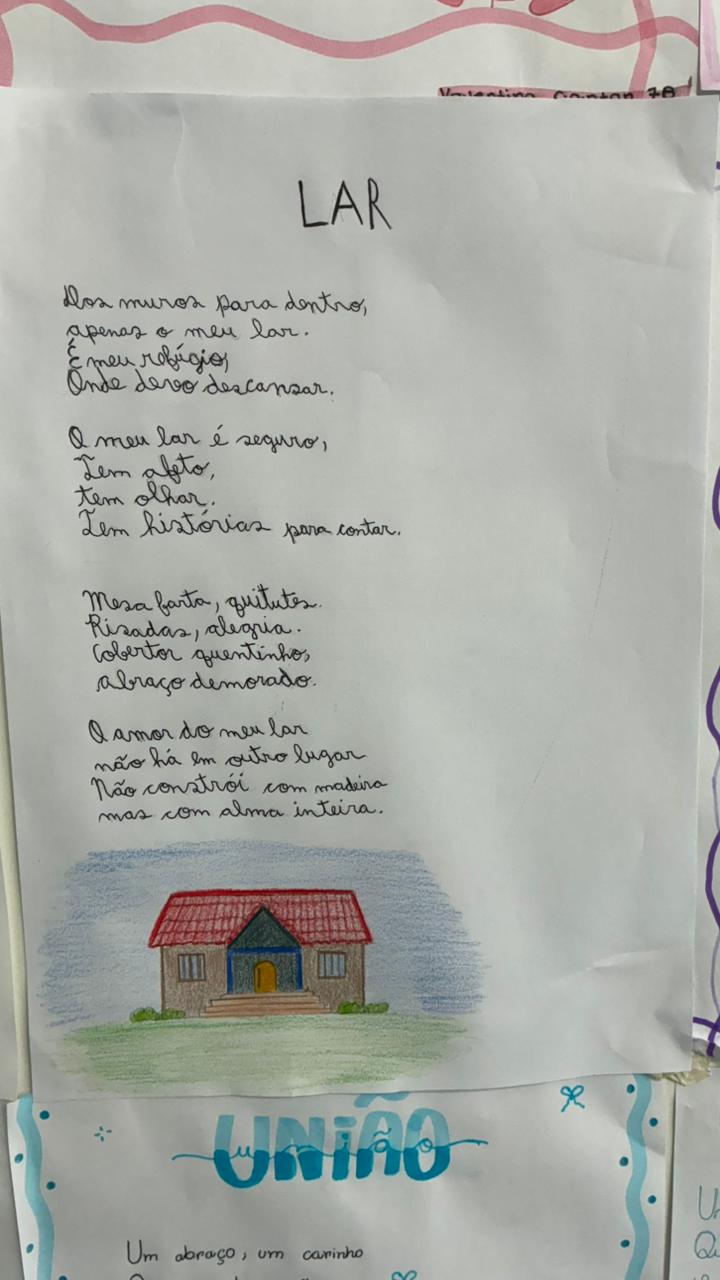 Valentina Gaintan 7B
LAR
Dos muros para dentro,
apenas o meu lar.
É meu refúgio,
Onde devo descansar.
O meu lar é seguro,
Tem afeto,
tem olhar.
Tem histórias para contar.
Mesa farta, quitutes.
Risadas, alegria.
Cobertor quentinho,
abraço demorado.
O amor do meu lar
não há em outro lugar
Não constrói com madeira
mas com alma inteira.
UNIÃO
união
Um abraço, um carinho